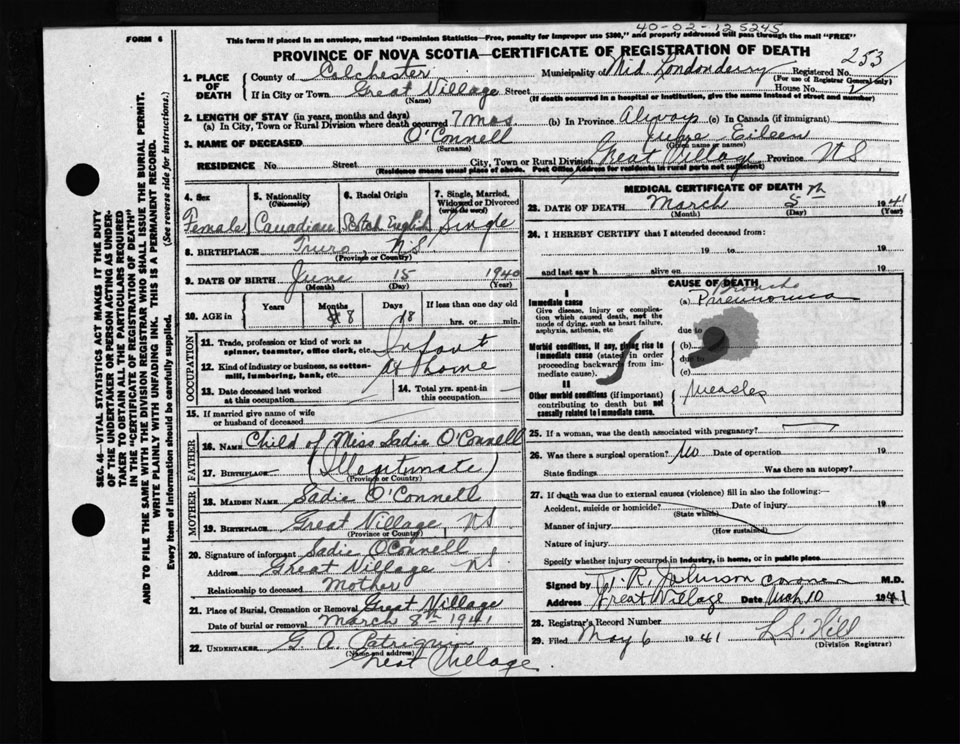 40-02-125245
FORM 6
This form if placed in an envelope, marked "Dominion Statistics—Free, penalty for improper use $300," and properly addressed will pass through the mail "FREE"
PROVINCE OF NOVA SCOTIA—CERTIFICATE OF REGISTRATION OF DEATH
253
1. PLACE OF DEATH County of Colchester Municipality of Mid Londonderry Registered No.
(For use of Registrar General only)
If in City or Town Great Village Street House No.
(Name) (If death occurred in a hospital or institution, give the name instead of street and number)
2. LENGTH OF STAY (in years, months and days)
(a) In City, Town or Rural Division where death occurred 7 mos (b) In Province Always (c) In Canada (if immigrant)
3. NAME OF DECEASED O'Connell Eileen
(Surname) (Given name or names)
RESIDENCE No. Street City, Town or Rural Division Great Village Province NS
(Residence means usual place of abode. Post Office Address for residents in rural parts not sufficient)
4. Sex 5. Nationality (Citizenship) 6. Racial Origin 7. Single, Married, Widowed or Divorced (write the word)
Female Canadian English Single
8. BIRTHPLACE Truro NS
(Province or Country)
9. DATE OF BIRTH June 15 1940
(Month) (Day) (Year)
10. AGE in Years Months Days If less than one day old
8 18 hrs. or min.
OCCUPATION
11. Trade, profession or kind of work as spinner, teamster, office clerk, etc. Infant
12. Kind of industry or business, as cotton-mill, lumbering, bank, etc. At home
13. Date deceased last worked at this occupation 14. Total yrs. spent in this occupation
15. If married give name of wife or husband of deceased
FATHER
16. NAME Child of Miss Sadie O'Connell
17. BIRTHPLACE (Illegitimate)
(Province or Country)
MOTHER
18. MAIDEN NAME Sadie O'Connell
19. BIRTHPLACE Great Village NS
(Province or Country)
20. Signature of informant Sadie O'Connell
Address Great Village NS
Relationship to deceased Mother
21. Place of Burial, Cremation or Removal Great Village
Date of burial or removal March 8th 1941
22. UNDERTAKER G. A. Patriquin
(Name and address)
Great Village
MEDICAL CERTIFICATE OF DEATH
23. DATE OF DEATH March 5th 1941
(Month) (Day) (Year)
24. I HEREBY CERTIFY that I attended deceased from:
19 to 19
and last saw h alive on 19
CAUSE OF DEATH
I
Immediate cause
Give disease, injury or complication which caused death, not the mode of dying, such as heart failure, asphyxia, asthenia, etc
(a) Broncho Pneumonia
due to
Morbid conditions, if any, giving rise to immediate cause (stated in order proceeding backwards from immediate cause).
(b)
due to
(c)
II
Other morbid conditions (if important) contributing to death but not causally related to immediate cause.
Measles
25. If a woman, was the death associated with pregnancy?
26. Was there a surgical operation? No Date of operation 19
State findings Was there an autopsy?
27. If death was due to external causes (violence) fill in also the following:—
Accident, suicide or homicide? Date of injury 19
(State which)
Manner of injury
(How sustained)
Nature of injury
Specify whether injury occurred in industry, in home, or in public place
Signed by R. Johnson coroner M.D.
Address Great Village Date Mch 10 1941
28. Registrar's Record Number
29. Filed May 6 1941 L.S. Hill
(Division Registrar)
SEC. 46—VITAL STATISTICS ACT MAKES IT THE DUTY
OF THE UNDERTAKER OR PERSON ACTING AS UNDERTAKER TO OBTAIN ALL THE PARTICULARS REQUIRED
IN THE "CERTIFICATE OF REGISTRATION OF DEATH"
AND TO FILE THE SAME WITH THE DIVISION REGISTRAR WHO SHALL ISSUE THE BURIAL PERMIT.
WRITE PLAINLY WITH UNFADING INK. THIS IS A PERMANENT RECORD.
Every item of information should be carefully supplied. (See reverse side for instructions.)